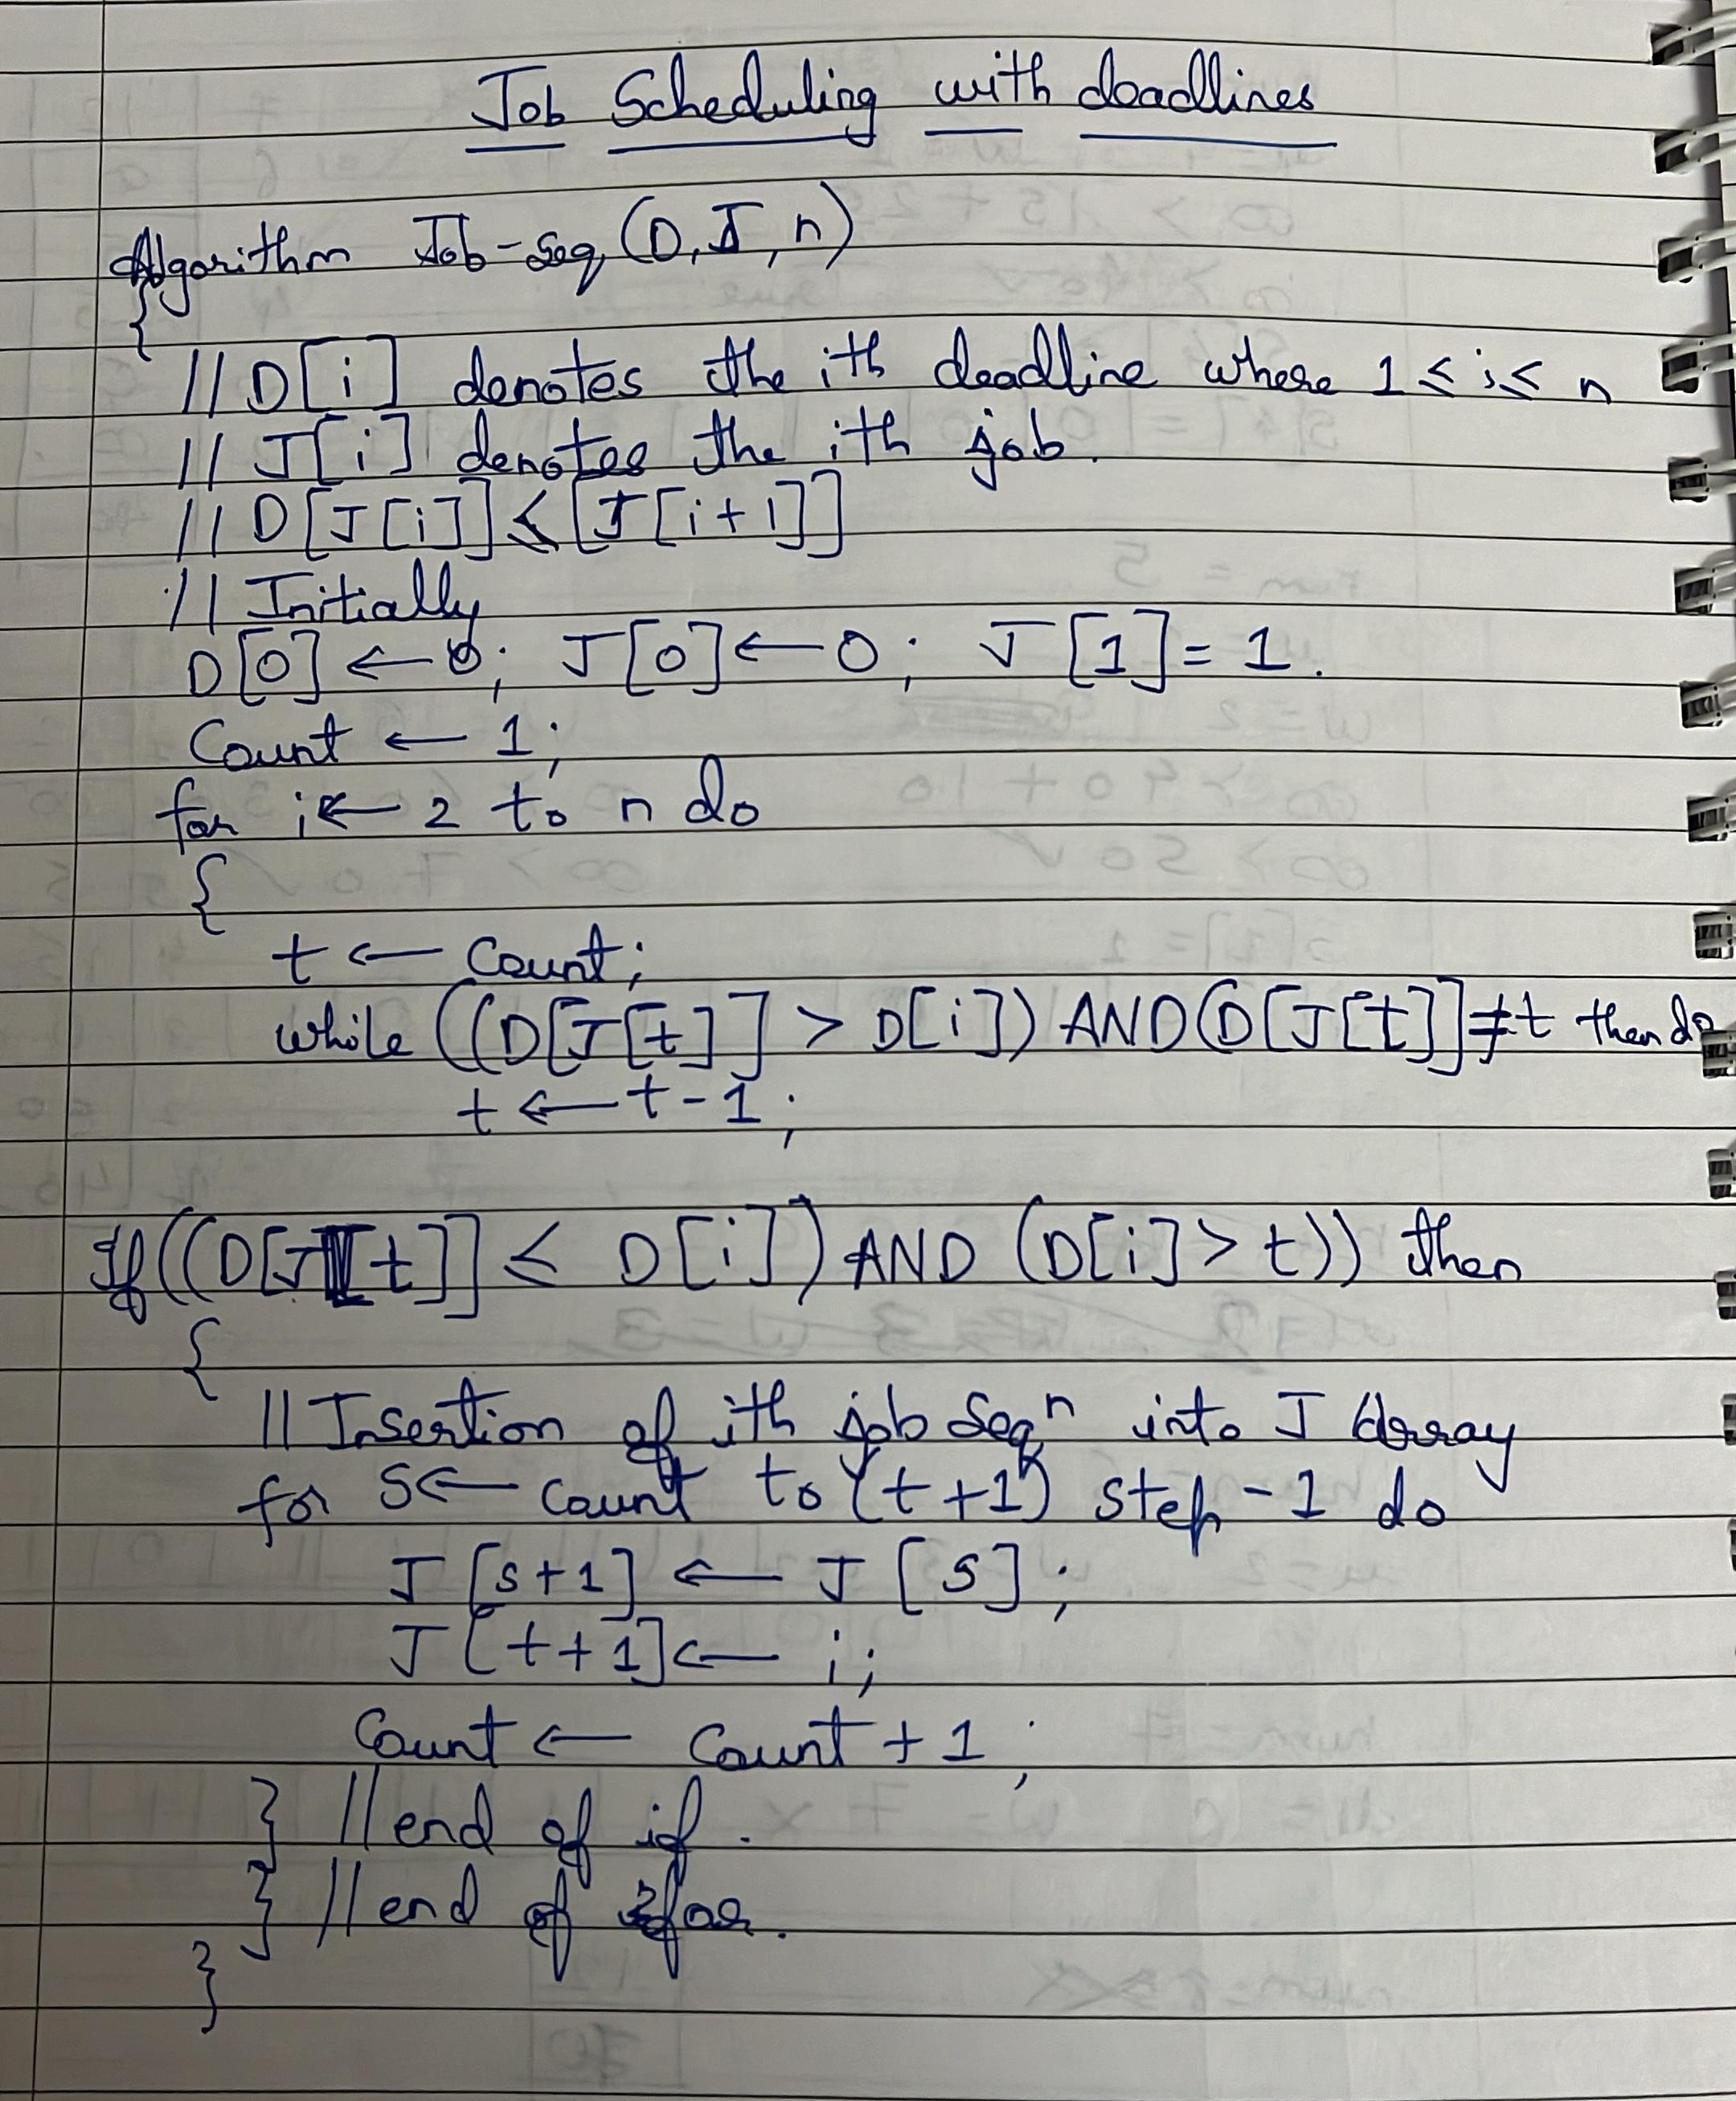 Job Scheduling with deadlines
Algorithm Job-Seq (D, J, n)
{
// D[i] denotes the ith deadline where 1 ≤ i ≤ n
// J[i] denotes the ith job.
// D[J[i]] ≤ [J[i+1]]
// Initially
D[0] ← 0; J[0] ← 0; J[1] = 1.
Count ← 1;
for i ← 2 to n do
{
t ← Count;
while ((D[J[t]] > D[i]) AND (D[J[t]] ≠ t then do
t ← t - 1;
If ((D[J[t]] ≤ D[i]) AND (D[i] > t)) then
{
// Insertion of ith job seqn into J Array
for s ← count to (t+1) step -1 do
J[s+1] ← J[s];
J[t+1] ← i;
Count ← Count + 1;
} // end of if.
} // end of for.
}